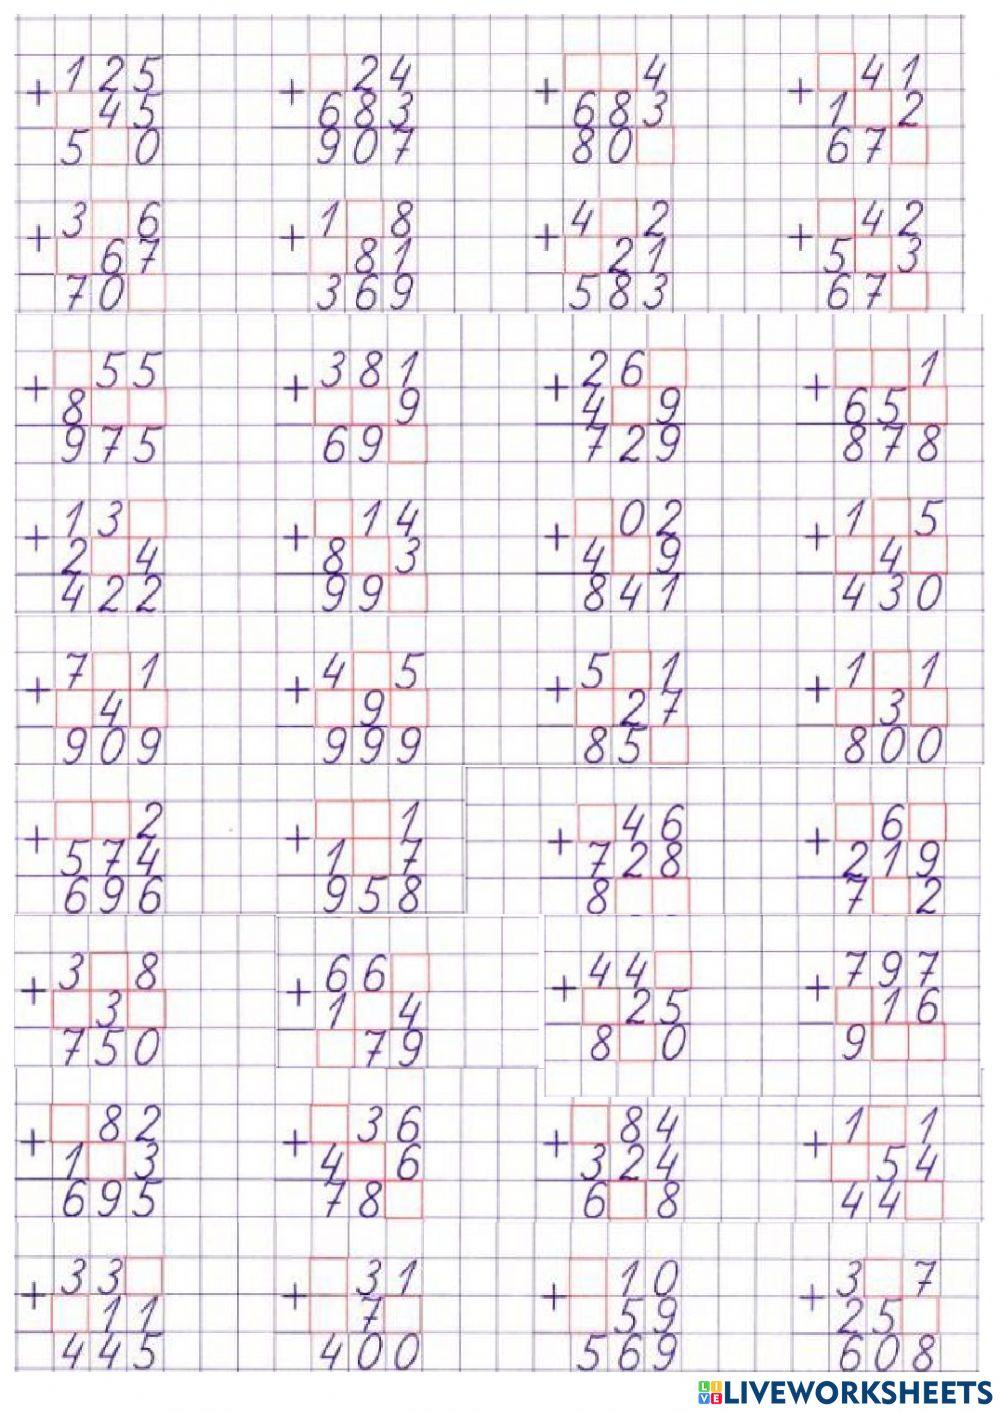 + 125 + □24 + □□4 + □41
□45 683 683 1□2
5□0 907 80□ 67□
+ 3□6 + 1□8 + 4□2 + □42
□67 □81 □21 5□3
70□ 369 583 67□
+ □55 + 381 + 26□ + □□1
8□□ □□9 4□9 65□
975 69□ 729 878
+ 13□ + □14 + □02 + 1□5
2□4 8□3 4□9 □4□
422 99□ 841 430
+ 7□1 + 4□5 + 5□1 + 1□1
□4□ □9□ □27 □3□
909 999 85□ 800
+ □□2 + □□1 + □46 + □6□
574 1□7 728 219
696 958 8□□ 7□2
+ 3□8 + 66□ + 44□ + 797
□3□ 1□4 □25 □16
750 □79 8□0 9□□
+ □82 + □36 + □84 + 1□1
1□3 4□6 324 □54
695 78□ 6□8 44□
+ 33□ + □31 + □10 + 3□7
□11 □7□ □59 25□
445 400 569 608
LIVEWORKSHEETS